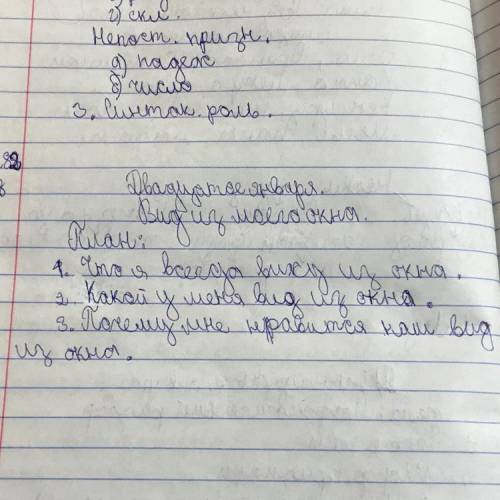 г) скл.
Непост. призн.
а) падеж
б) число
3. Синтак. роль.
82
Двадцатое января.
Вид из моего окна.
План:
1. Что я всегда вижу из окна.
2. Какой у меня вид из окна.
3. Почему мне нравится наш вид
из окна.